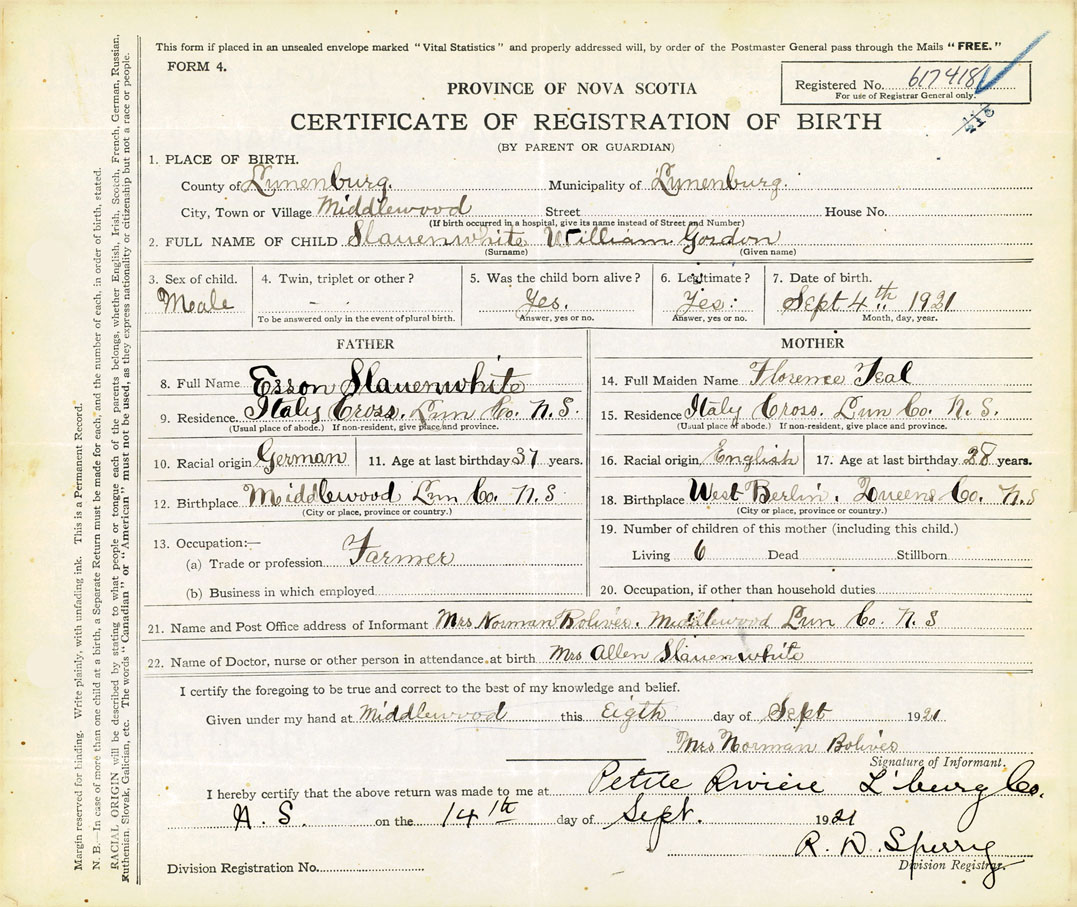 This form if placed in an unsealed envelope marked "Vital Statistics" and properly addressed will, by order of the Postmaster General pass through the Mails "FREE."
FORM 4.
PROVINCE OF NOVA SCOTIA
Registered No. 6174181
For use of Registrar General only.
CERTIFICATE OF REGISTRATION OF BIRTH
(BY PARENT OR GUARDIAN)
1. PLACE OF BIRTH.
County of Lunenburg. Municipality of Lunenburg.
City, Town or Village Middlewood Street House No.
(If birth occurred in a hospital, give its name instead of Street and Number)
2. FULL NAME OF CHILD Slauenwhite William Gordon
(Surname) (Given name)
3. Sex of child. 4. Twin, triplet or other? 5. Was the child born alive? 6. Legitimate? 7. Date of birth.
Meale — Yes. Yes: Sept 4th 1921
To be answered only in the event of plural birth. Answer, yes or no. Answer, yes or no. Month, day, year.
FATHER
8. Full Name Esson Slauenwhite
9. Residence Italy Cross. Lun Co. N.S.
(Usual place of abode.) If non-resident, give place and province.
10. Racial origin German 11. Age at last birthday 37 years.
12. Birthplace Middlewood Lun Co. N S
(City or place, province or country.)
13. Occupation:—
(a) Trade or profession Farmer
(b) Business in which employed
MOTHER
14. Full Maiden Name Florence Teal
15. Residence Italy Cross. Lun Co. N. S.
(Usual place of abode.) If non-resident, give place and province.
16. Racial origin English 17. Age at last birthday 28 years.
18. Birthplace West Berlin. Queens Co. N.S
(City or place, province or country.)
19. Number of children of this mother (including this child.)
Living 6 Dead Stillborn
20. Occupation, if other than household duties
21. Name and Post Office address of Informant Mrs Norman Boliver. Middlewood Lun Co. N. S
22. Name of Doctor, nurse or other person in attendance at birth Mrs Allen Slauenwhite
I certify the foregoing to be true and correct to the best of my knowledge and belief.
Given under my hand at Middlewood this Eigth day of Sept 1921
Mrs Norman Boliver
Signature of Informant.
I hereby certify that the above return was made to me at Petite Riviere L'burg Co.
N. S. on the 14th day of Sept. 1921
R. D. Sperry
Division Registrar.
Division Registration No.
Margin reserved for binding. Write plainly, with unfading ink. This is a Permanent Record.
N. B.—In case of more than one child at a birth, a Separate Return must be made for each, and the number of each, in order of birth, stated.
RACIAL ORIGIN will be described by stating to what people or tongue each of the parents belongs, whether English, Irish, Scotch, French, German, Russian,
Ruthenian, Slovak, Galician, etc. The words "Canadian" or "American" must not be used, as they express nationality or citizenship but not a race or people.